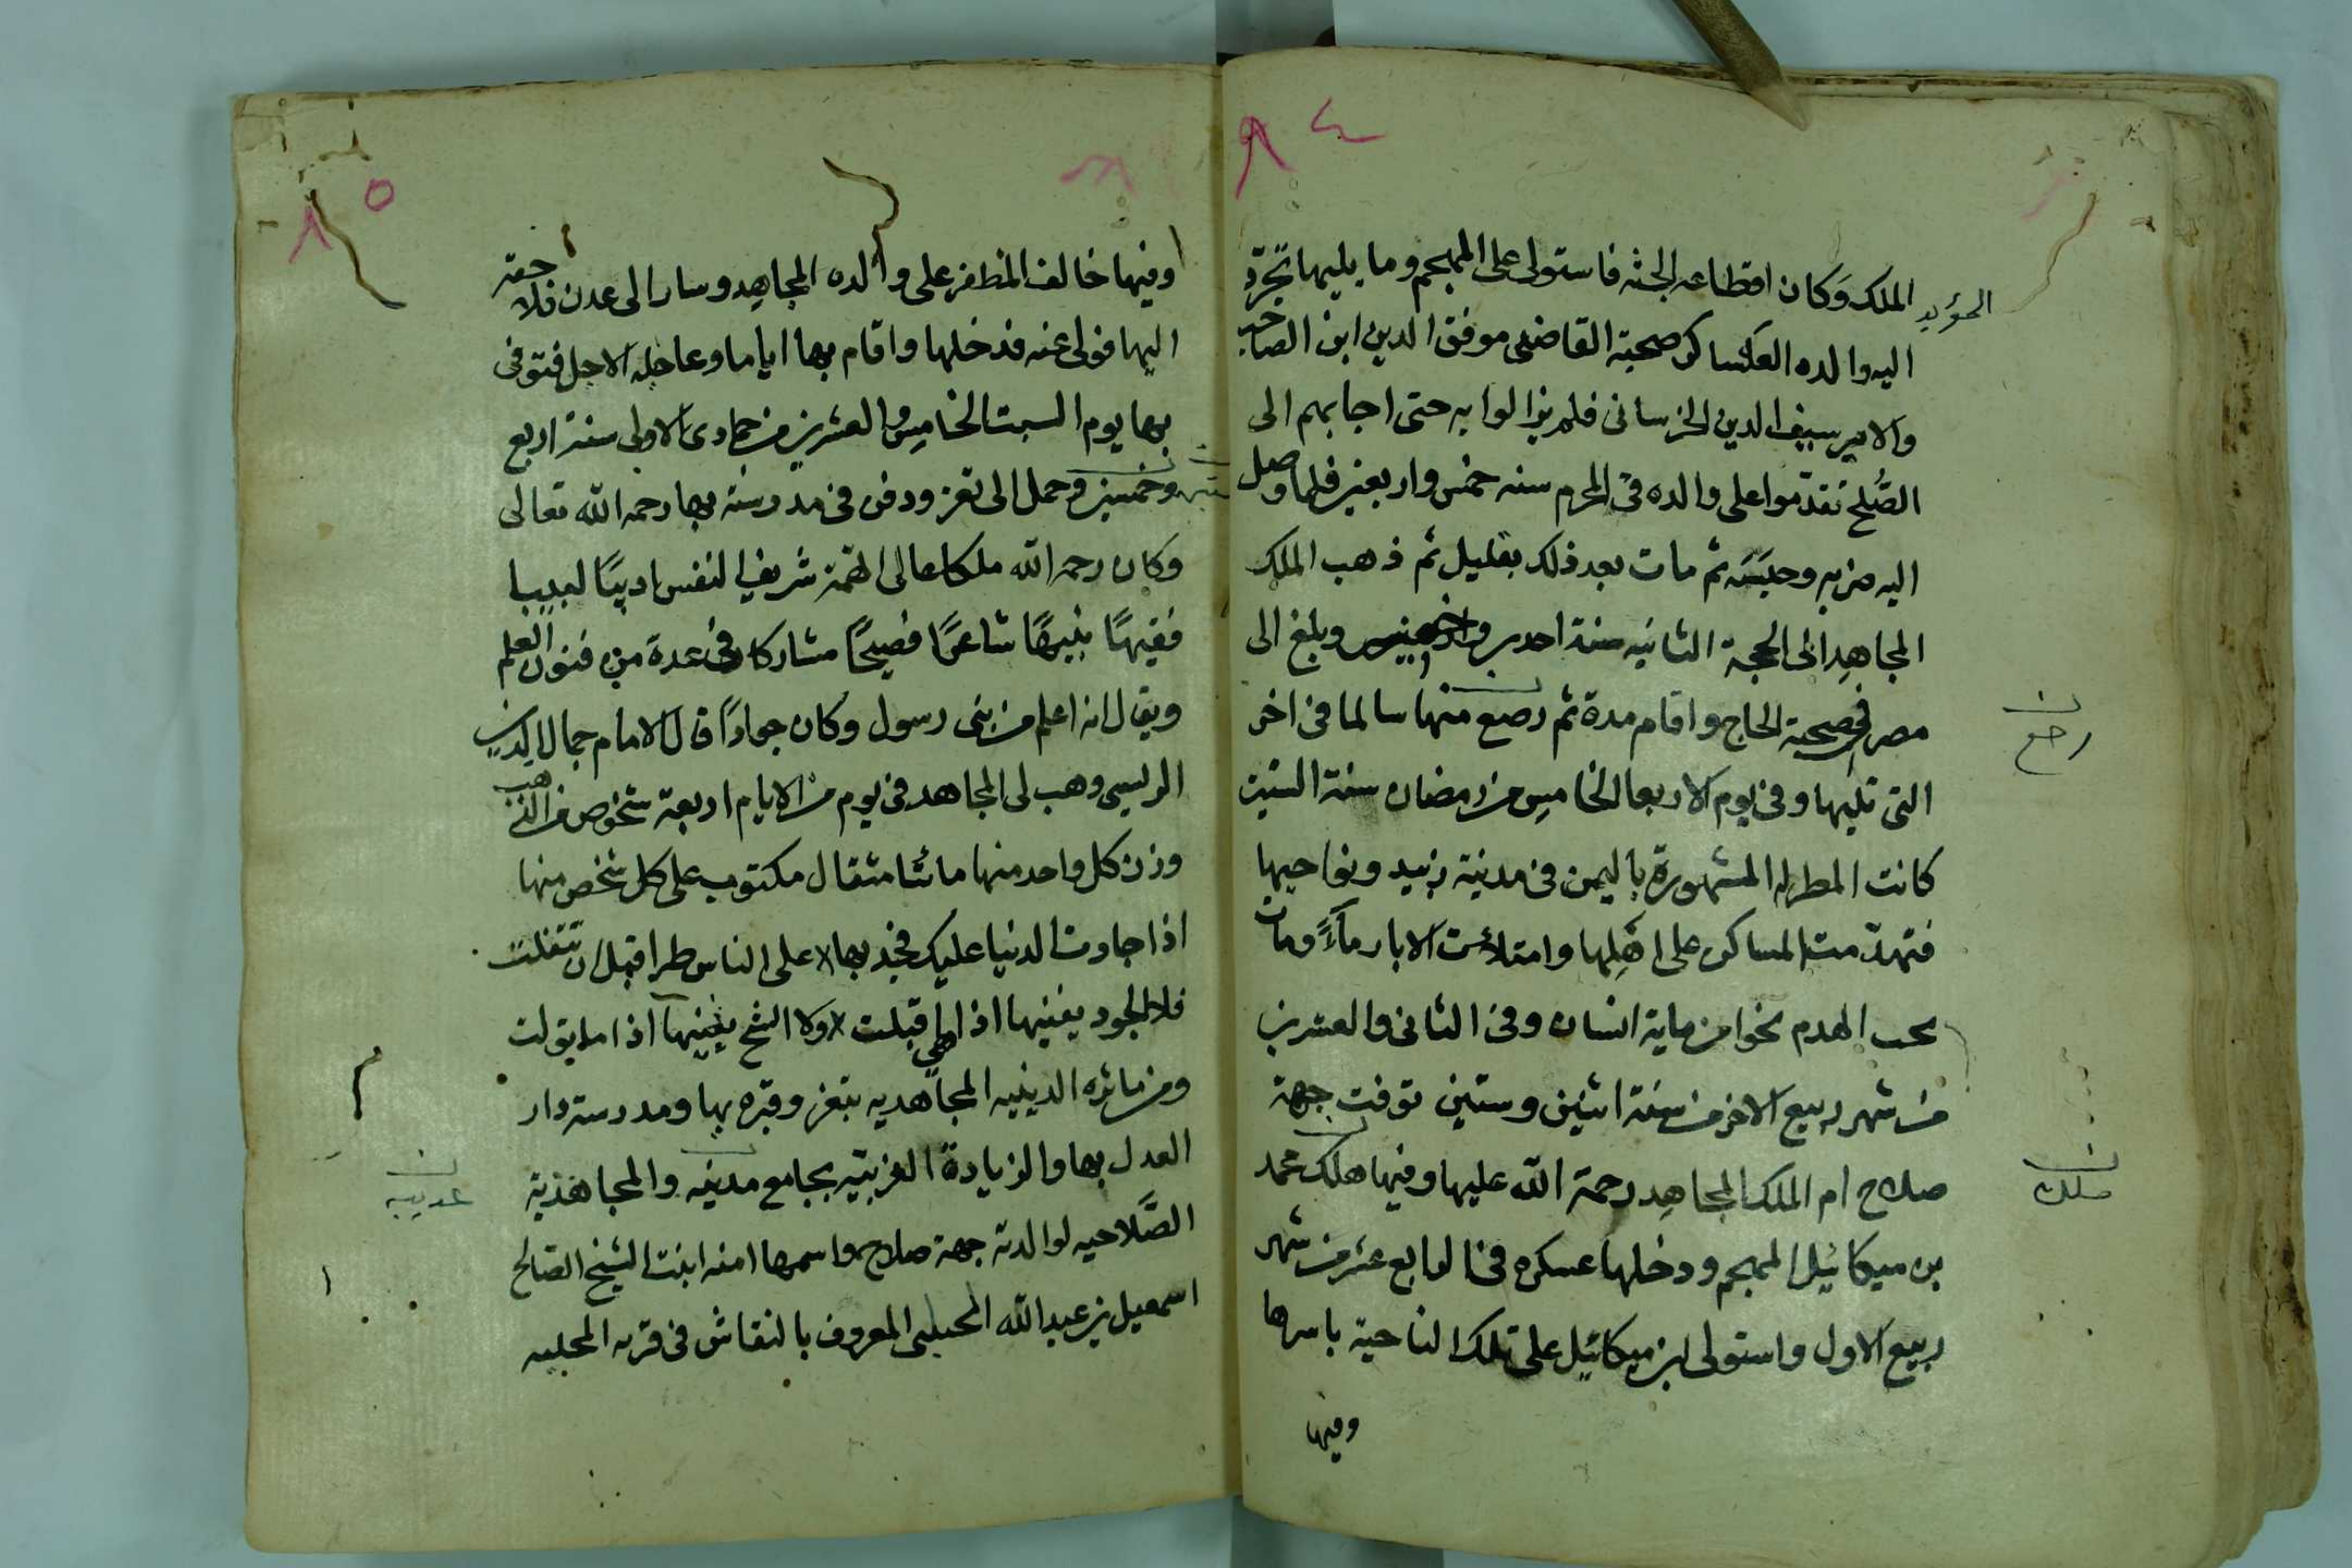 ٨٤
المؤيد
الملك وكان اقطاعه الجثه فاستولى على المهجم وما يليها تجرّد
اليه والده العساكر صحبة القاضى موفق الدين ابن الصاحب
والامير سيف الدين الخرسانى فلم يزالوا به حتى اجابهم الى
الصُّلح تقدّموا على والده فى المحرم سنه خمس واربعين فلما وصل
اليه ضربه وحبسَه ثم مات بعد ذلك بقليل ثم ذهب الملك
المجاهدِ الى الحجة الثانيه سنة احدى وخمسين وبلغ الى
مصر فى صحبة الحاج واقام مدة ثم رصع منها سالما فى اخر
رجع
التى تليها وفى يوم الاربعا الخامِس من رمضان سنة الستين
كانت المطره المشهورة باليمن فى مدنية زبيد ونواحيها
فتهدّمت المساكن على اهلِها وامتلأت الابار ماءً ومات
تحت الهدم نحوا من ماية انسان وفى الثانى والعشرين
من شهر ربيع الاخر من سنة اثنين وستين توفت جهة
صلاح ام الملك المجاهِد رحمة الله عليها وفيها هلك محمد
ملك
بن ميكائيل المهجم ودخلها عسكره فى الرابع عشر من شهر
ربيع الاول واستولى ابن ميكائيل على تلك الناحية باسرها
وفيها
٨٥
وفيها خالف المظفر على والده المجاهِد وسار الى عدن فلاحقه
اليها فولى عنه فدخلها واقام بها اياما وعاجله الاجل فتوفى
بها يوم السبت الخامِس والعشرين من جمادى الاولى سنة اربع
وخمسين وحمل الى تعز ودفن فى مدرسته بها رحمه الله تعالى
ستين
وكان رحمه الله ملكا عالى الهمّة شريف النفس اديبًا لبيبا
فقيهًا نبيهًا شاعرًا فصيحًا مشاركا فى عدة من فنون العلم
ويقال انه اعلم من بنى رسول وكان جوادًا قال الامام جمال الدين
الريسى وهب لى المجاهد فى يوم من الايام اربعة شخوص من الذهب
وزن كل واحد منها مائتا مثقال مكتوب على كل شخص منها
اذا جادت الدنيا عليك فجد بها على الناس طرا قبل ان تتفلت
فلا الجود يفنيها اذا هي اقبلت ولا الشح يبقيها اذا ما تولت
ومن مائره الدينيه المجاهديه بتعز وقبره بها ومدرسة دار
العدل بها والزيادة الغربيّه بجامع مدنيه والمجاهذية
عدينه
الصَّلاحيه لوالدته جهة صلاح واسمها امنه ابنت الشيخ الصالح
اسمعيل بن عبدالله الحبلى المعروف بالنقاش فى قريه المحليه